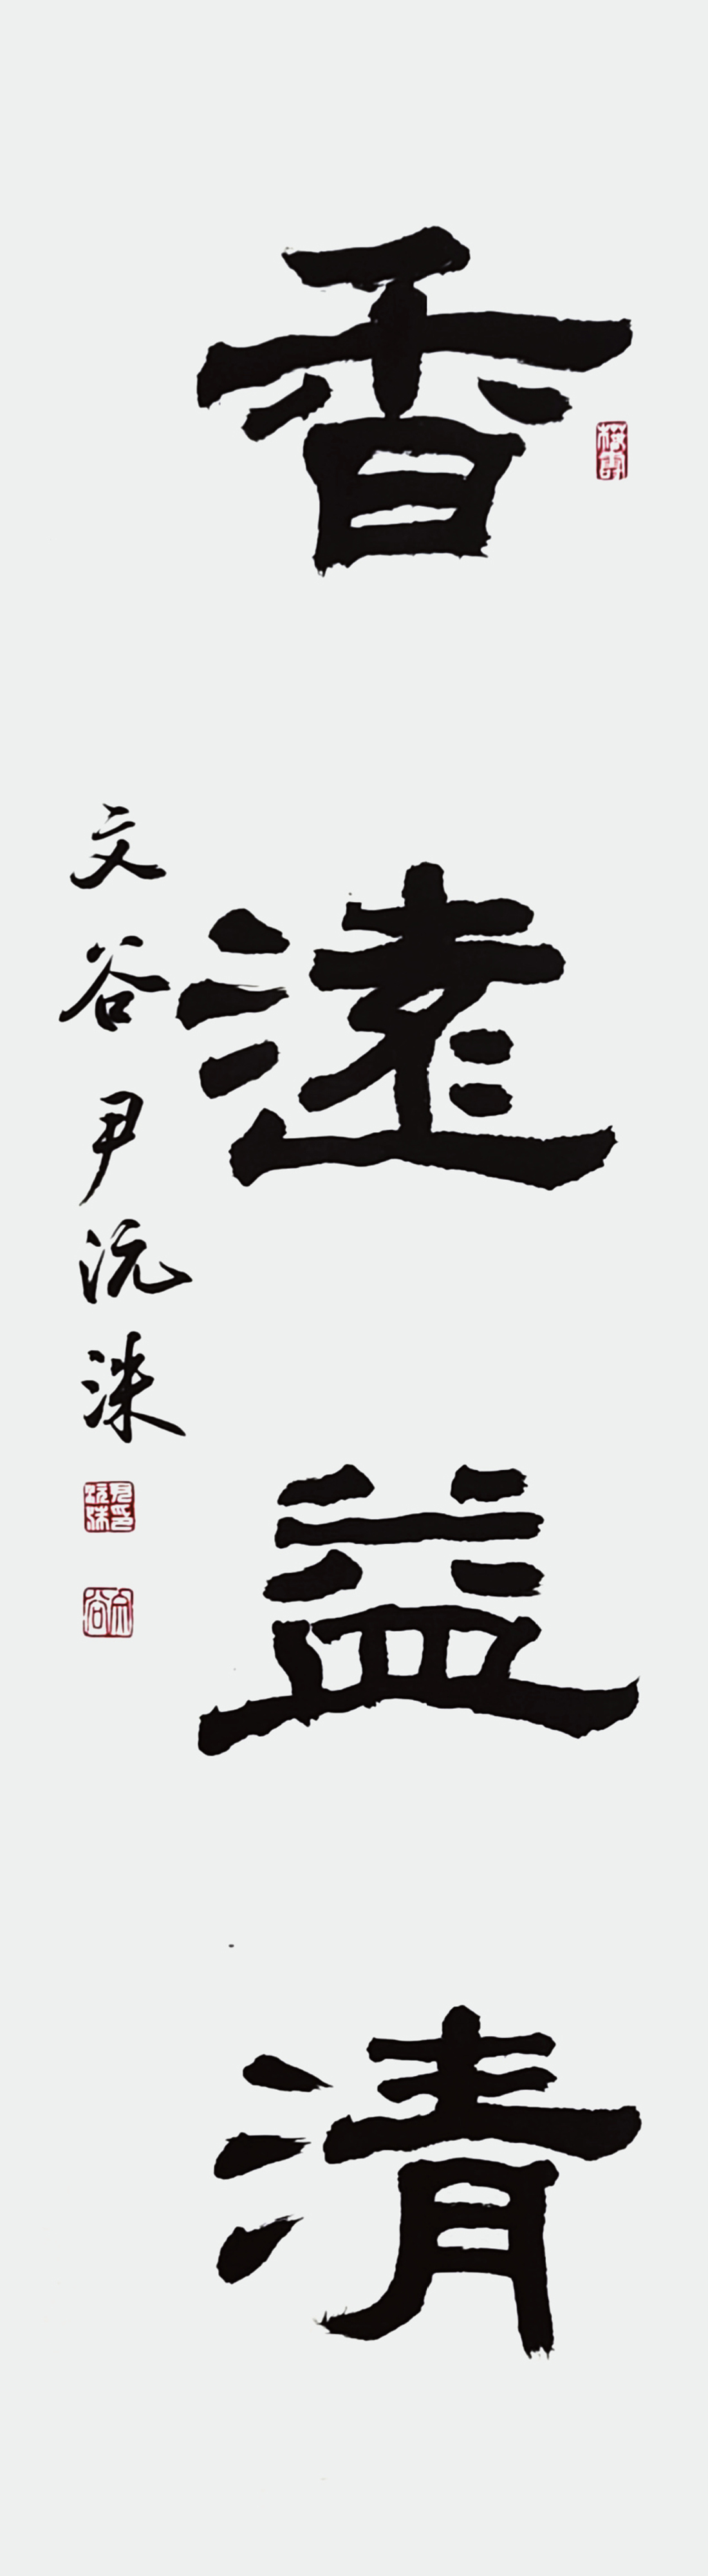 香遠益清
文谷尹沅洙